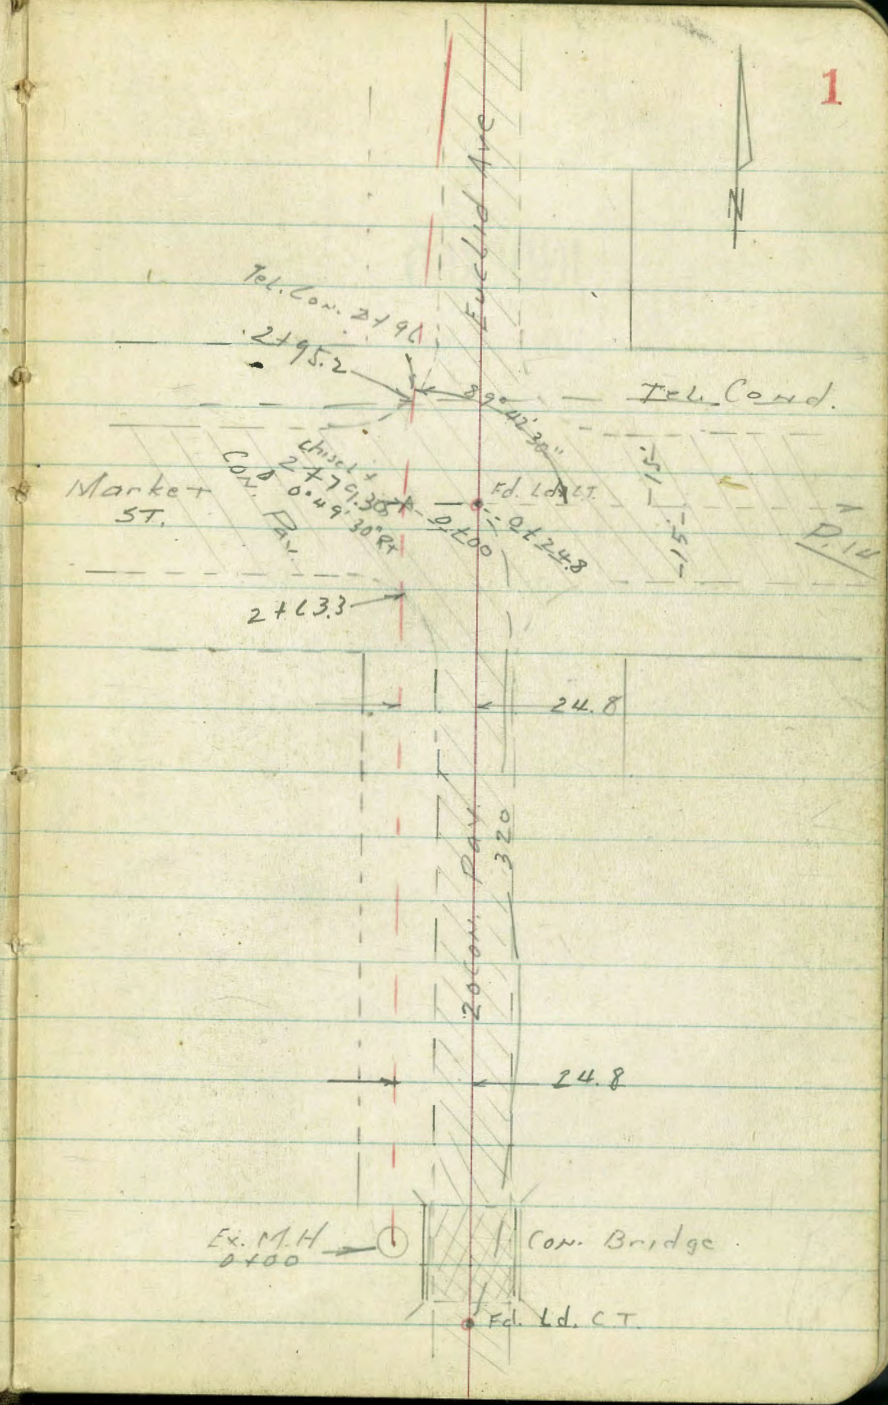 1
Euclid Ave
N
Tel. Con. 2+96
2+95.2
Tel. Cond.
89° 42' 30"
-15-
-15-
Market
ST.
Con. Pav.
chisel +
2+79.38
0° 49' 30" Rt
Fd. Ld. C.T.
0+00
0+24.8
P. 14
2+63.3
24.8
20 Con. Pav.
320
24.8
Ex. M.H
0+00
Con. Bridge
Fd. Ld. C.T.